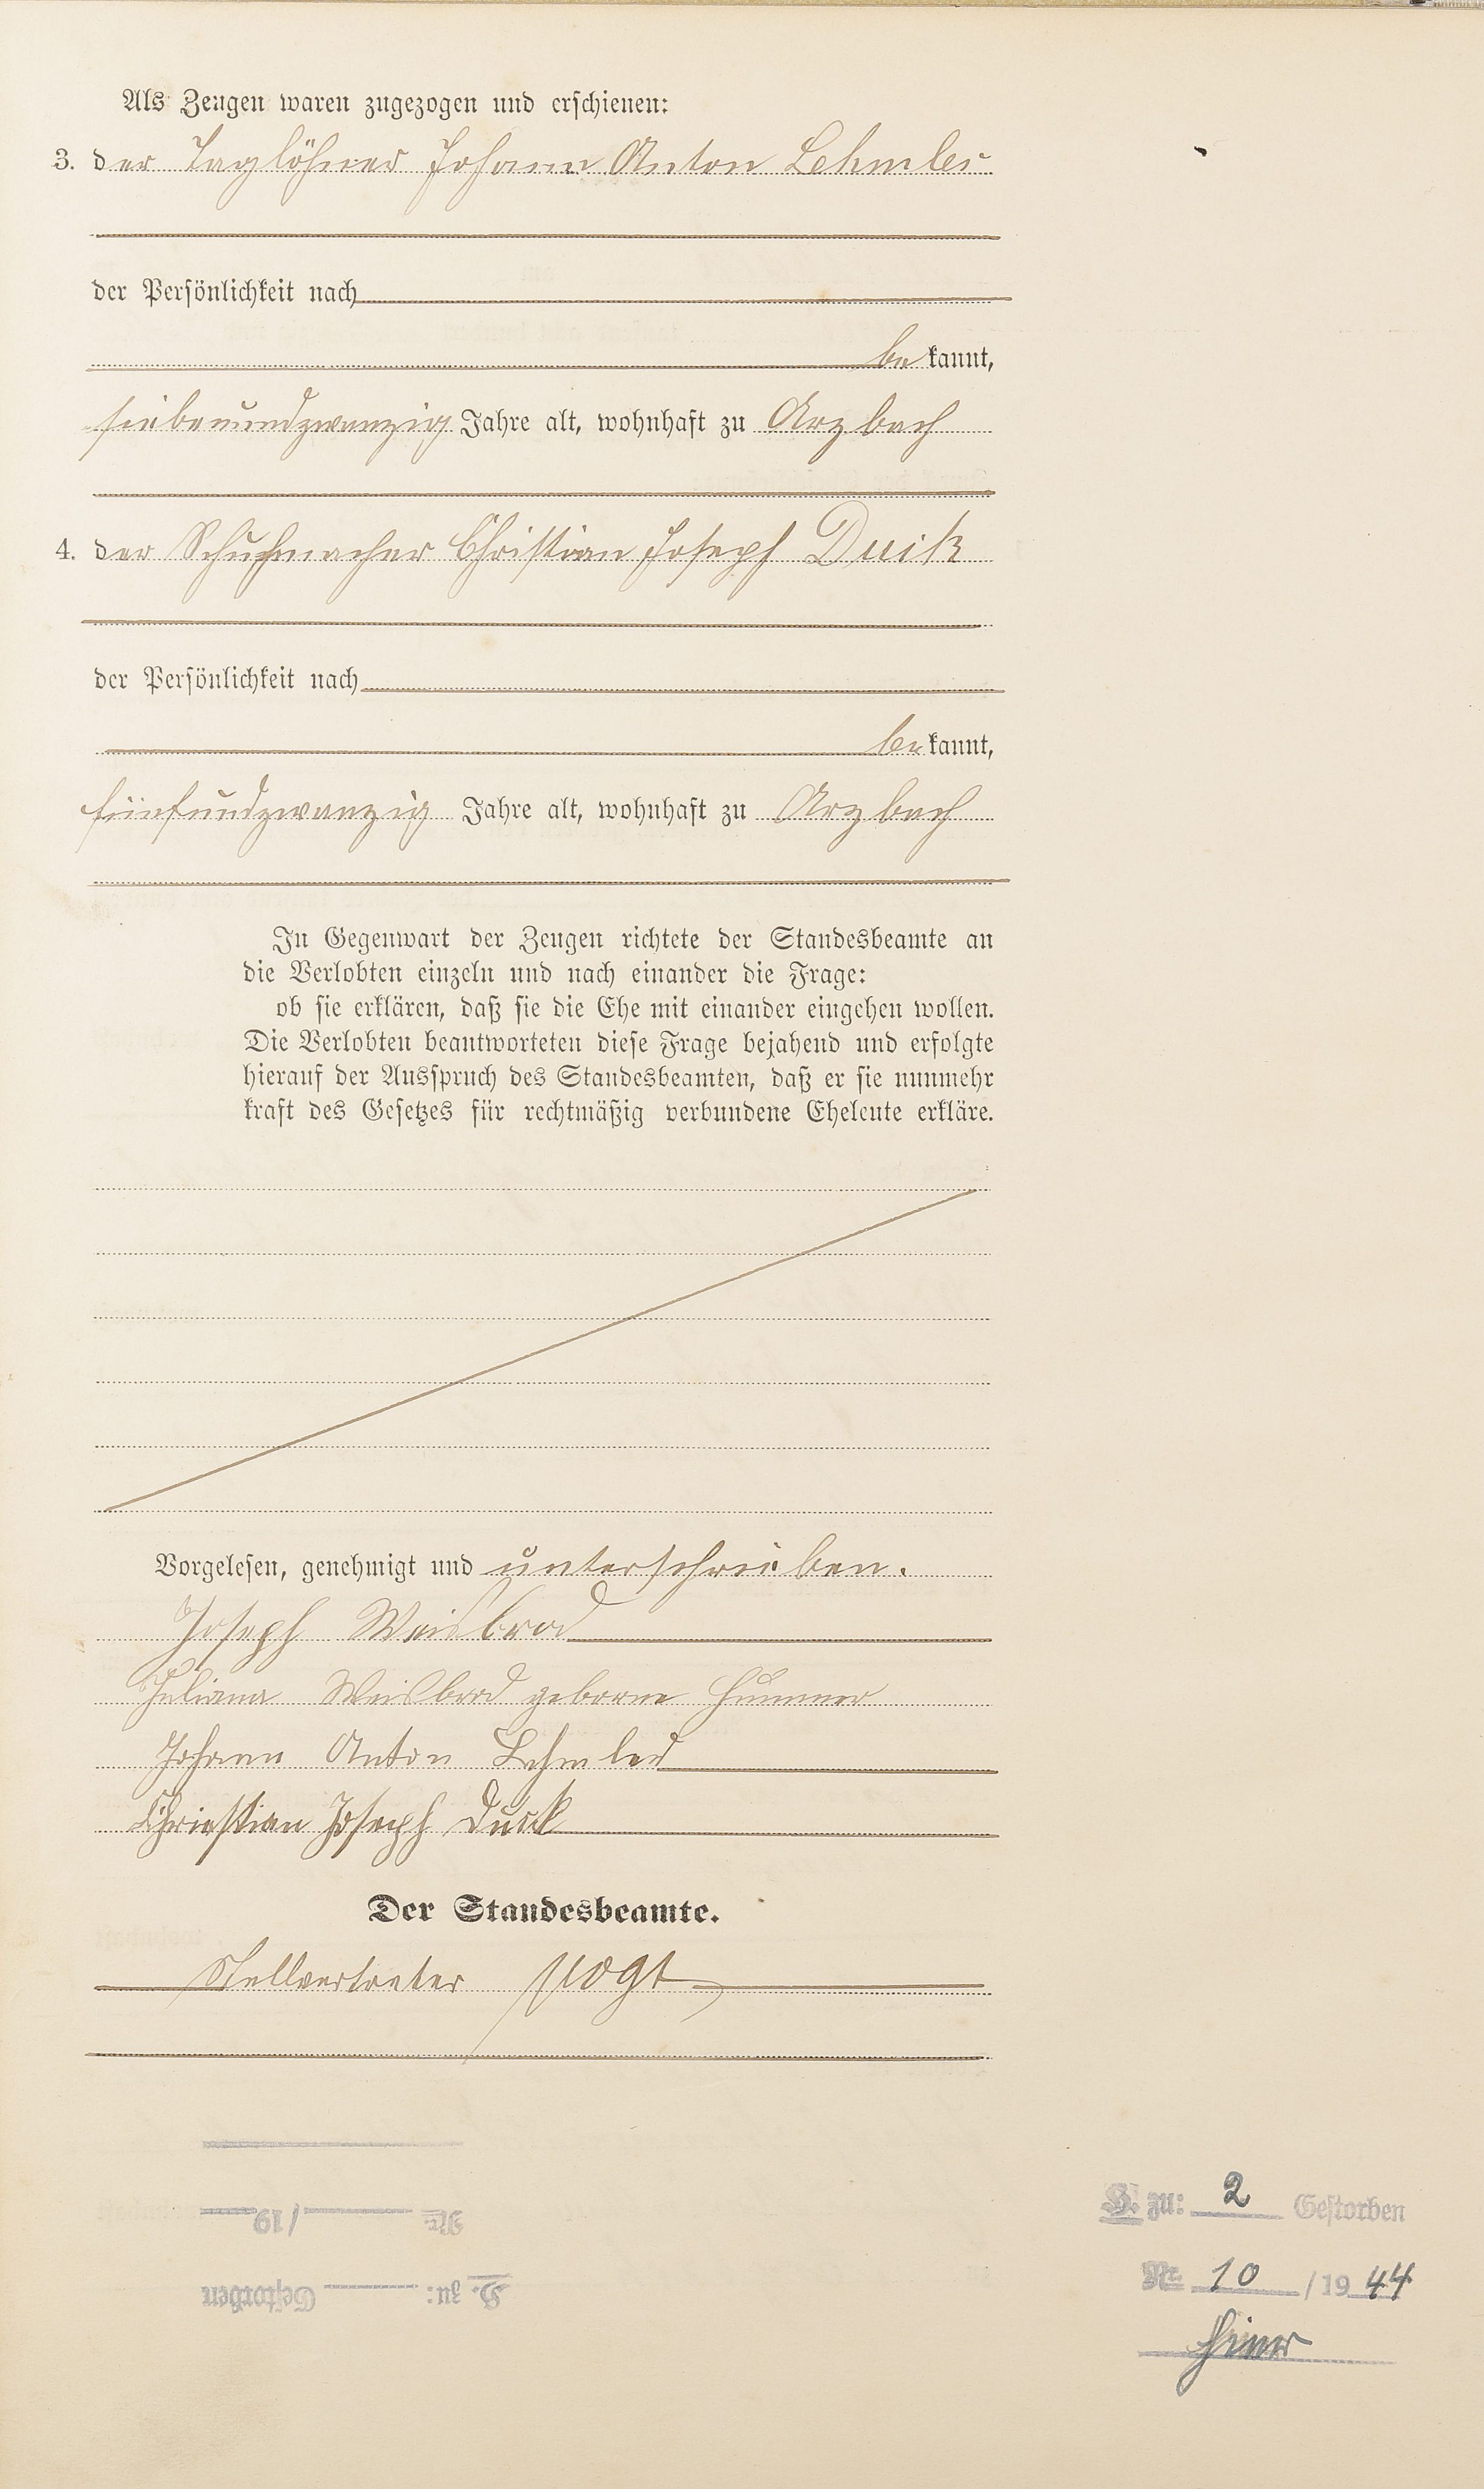 Als Zeugen waren zugezogen und erschienen:
3. der Taglöhner Johann Anton Lehmler
der Persönlichkeit nach
be kannt,
siebenundzwanzig Jahre alt, wohnhaft zu Arzbach
4. der Schuhmacher Christian Joseph Duck
der Persönlichkeit nach
be kannt,
fünfundzwanzig Jahre alt, wohnhaft zu Arzbach
In Gegenwart der Zeugen richtete der Standesbeamte an
die Verlobten einzeln und nach einander die Frage:
ob sie erklären, daß sie die Ehe mit einander eingehen wollen.
Die Verlobten beantworteten diese Frage bejahend und erfolgte
hierauf der Ausspruch des Standesbeamten, daß er sie nunmehr
kraft des Gesetzes für rechtmäßig verbundene Eheleute erkläre.
Vorgelesen, genehmigt und unterschrieben.
Joseph Weisbrod
Juliana Weisbrod geborne Hummer
Johann Anton Lehmler
Christian Joseph Duck
Der Standesbeamte.
Stellvertreter Vogt
Nr. /19
H. zu: Gestorben
H. zu: 2 Gestorben
Nr. 10 /19 44
hier